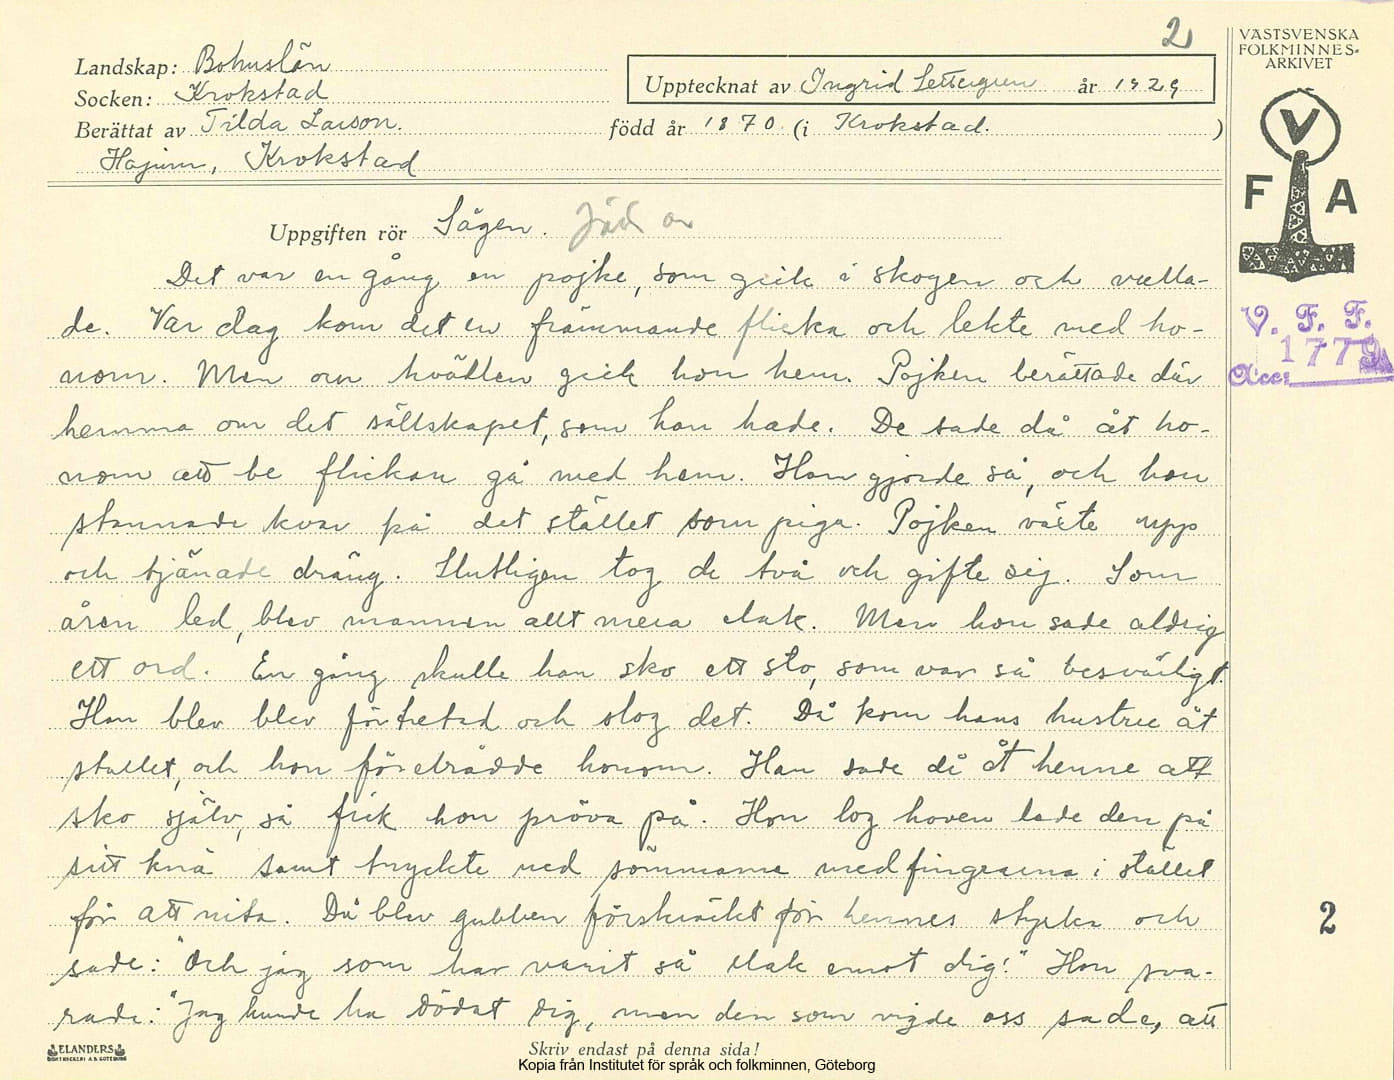 2
Landskap: Bohuslän
Socken: Krokstad
Berättat av Tilda Larson.
Hajum, Krokstad
Upptecknat av Ingrid Settergren år 1929
född år 1870. (i Krokstad. )
VÄSTSVENSKA
FOLKMINNES-
ARKIVET
V
F A
V. F. F.
Acc: 1779
Uppgiften rör Sägen.
Det var en gång en pojke, som gick i skogen och valla-
de. Var dag kom det en främmande flicka och lekte med ho-
nom. Men om kvällen gick hon hem. Pojken berättade där
hemma om det sällskapet, som han hade. De sade då åt ho-
nom att be flickan gå med hem. Han gjorde så, och hon
stannade kvar på det stället som piga. Pojken växte upp
och tjänade dräng. Slutligen tog de två och gifte sig. Som
åren led, blev mannen allt mera elak. Men hon sade aldrig
ett ord. En gång skulle han sko ett sto, som var så besvärligt.
Han blev blev förtretad och slog det. Då kom hans hustru åt
stallet, och hon förebrådde honom. Han sade då åt henne att
sko själv, så fick hon pröva på. Hon tog hoven lade den på
sitt knä samt tryckte ned sömmarna med fingrarna i stället
för att nita. Då blev gubben förskräckt för hennes styrka och
sade: "Och jag som har varit så elak emot dig!" Hon sva-
rade: "Jag kunde ha dödat dig, men den som vigde oss sade, att
2
ELANDERS
BOKTRYCKERI A.B. GÖTEBORG
Skriv endast på denna sida!
Kopia från Institutet för språk och folkminnen, Göteborg